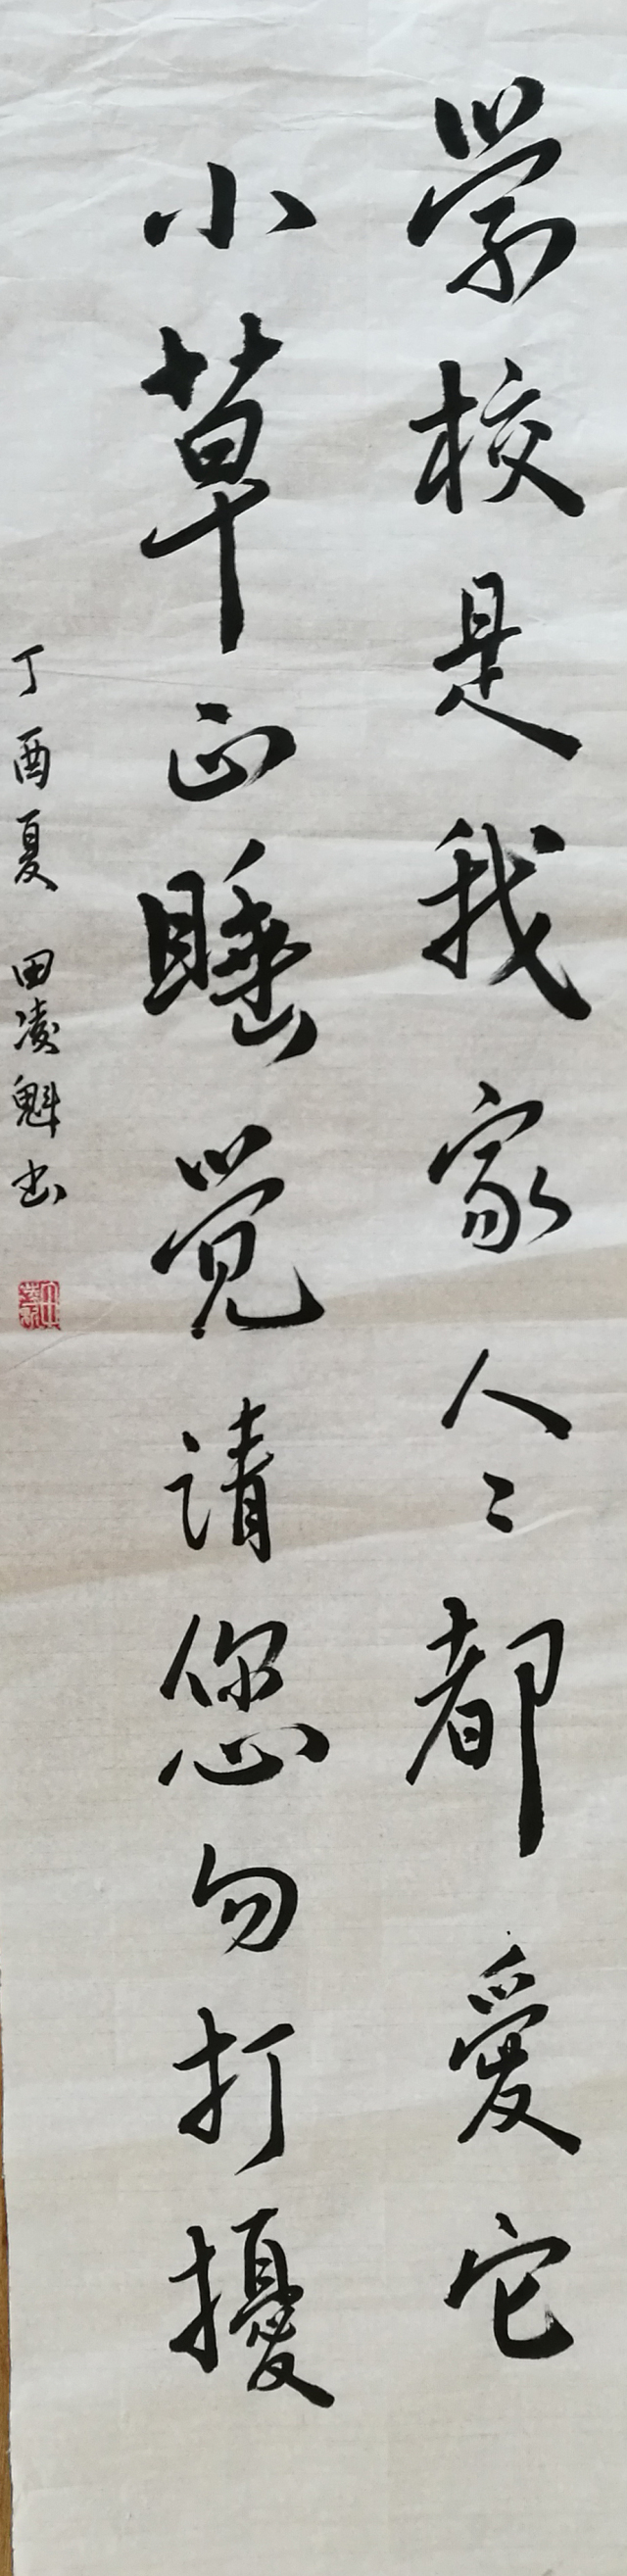 学校是我家人々都愛它
小草正睡觉请您勿打擾
丁酉夏 田凌魁书